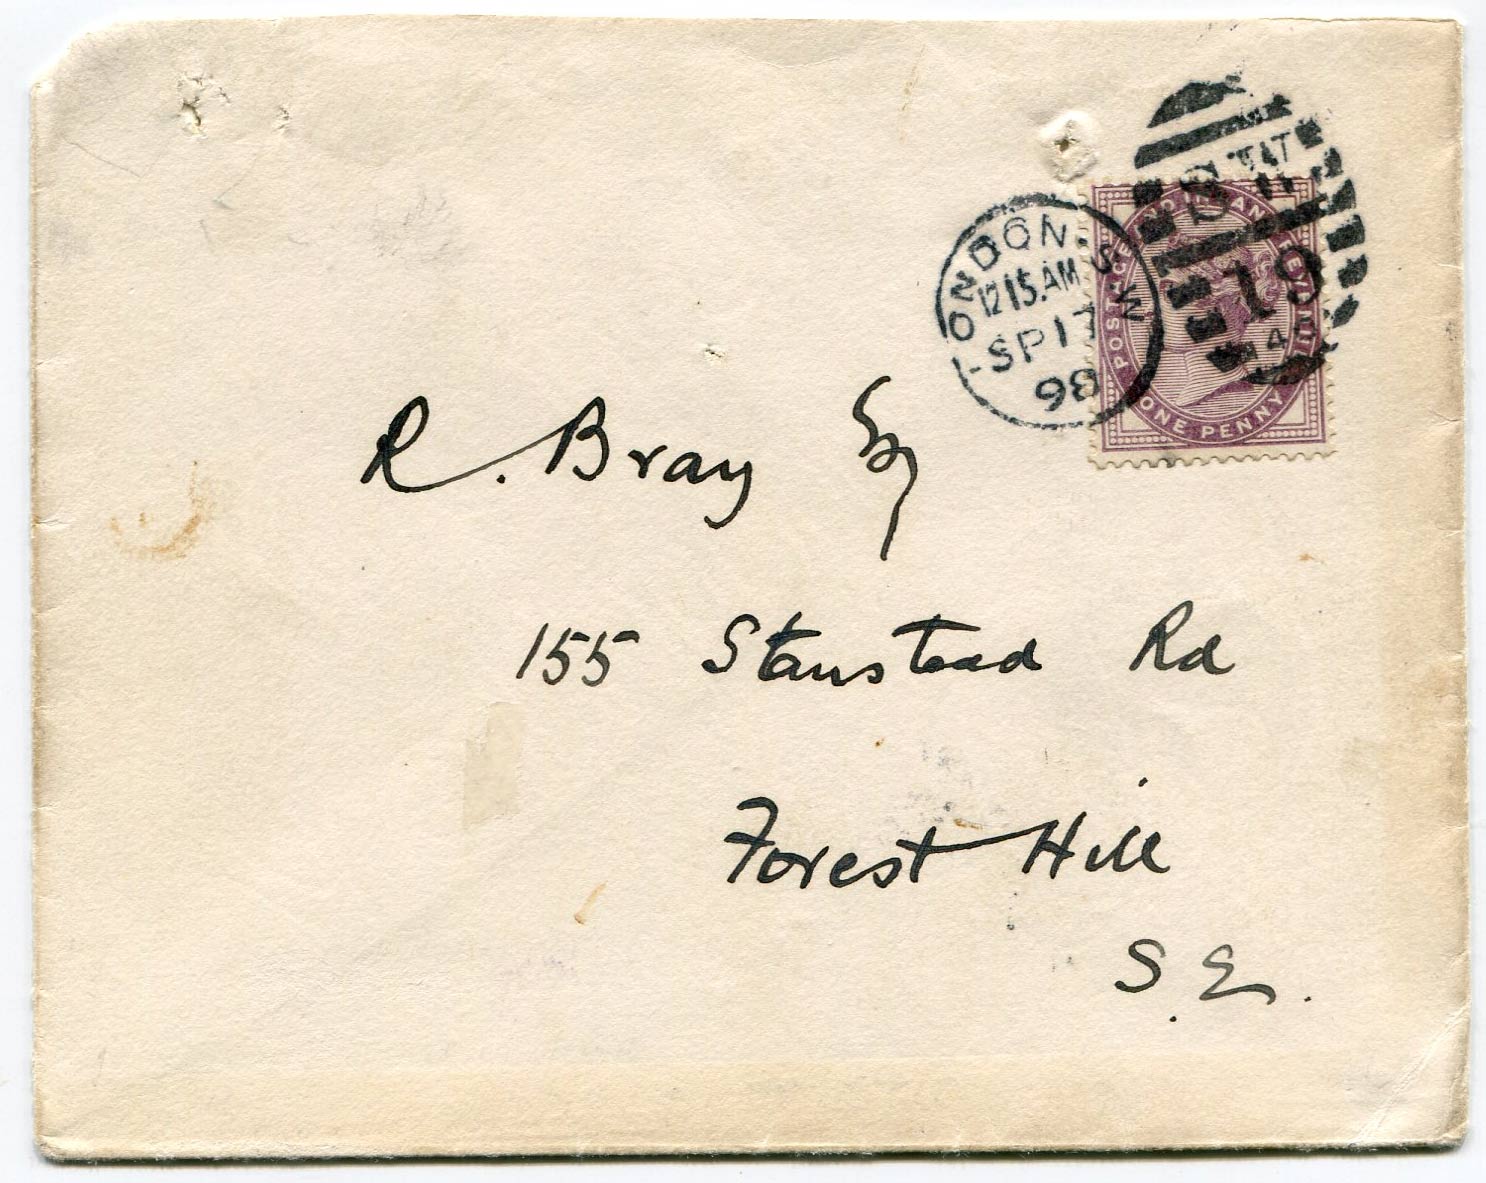 LONDON. S.W
12 15. AM
SP 17
98
S.W
19
POSTAGE AND INLAND REVENUE
ONE PENNY
R. Bray Esq
155 Stanstead Rd
Forest Hill
S. E.